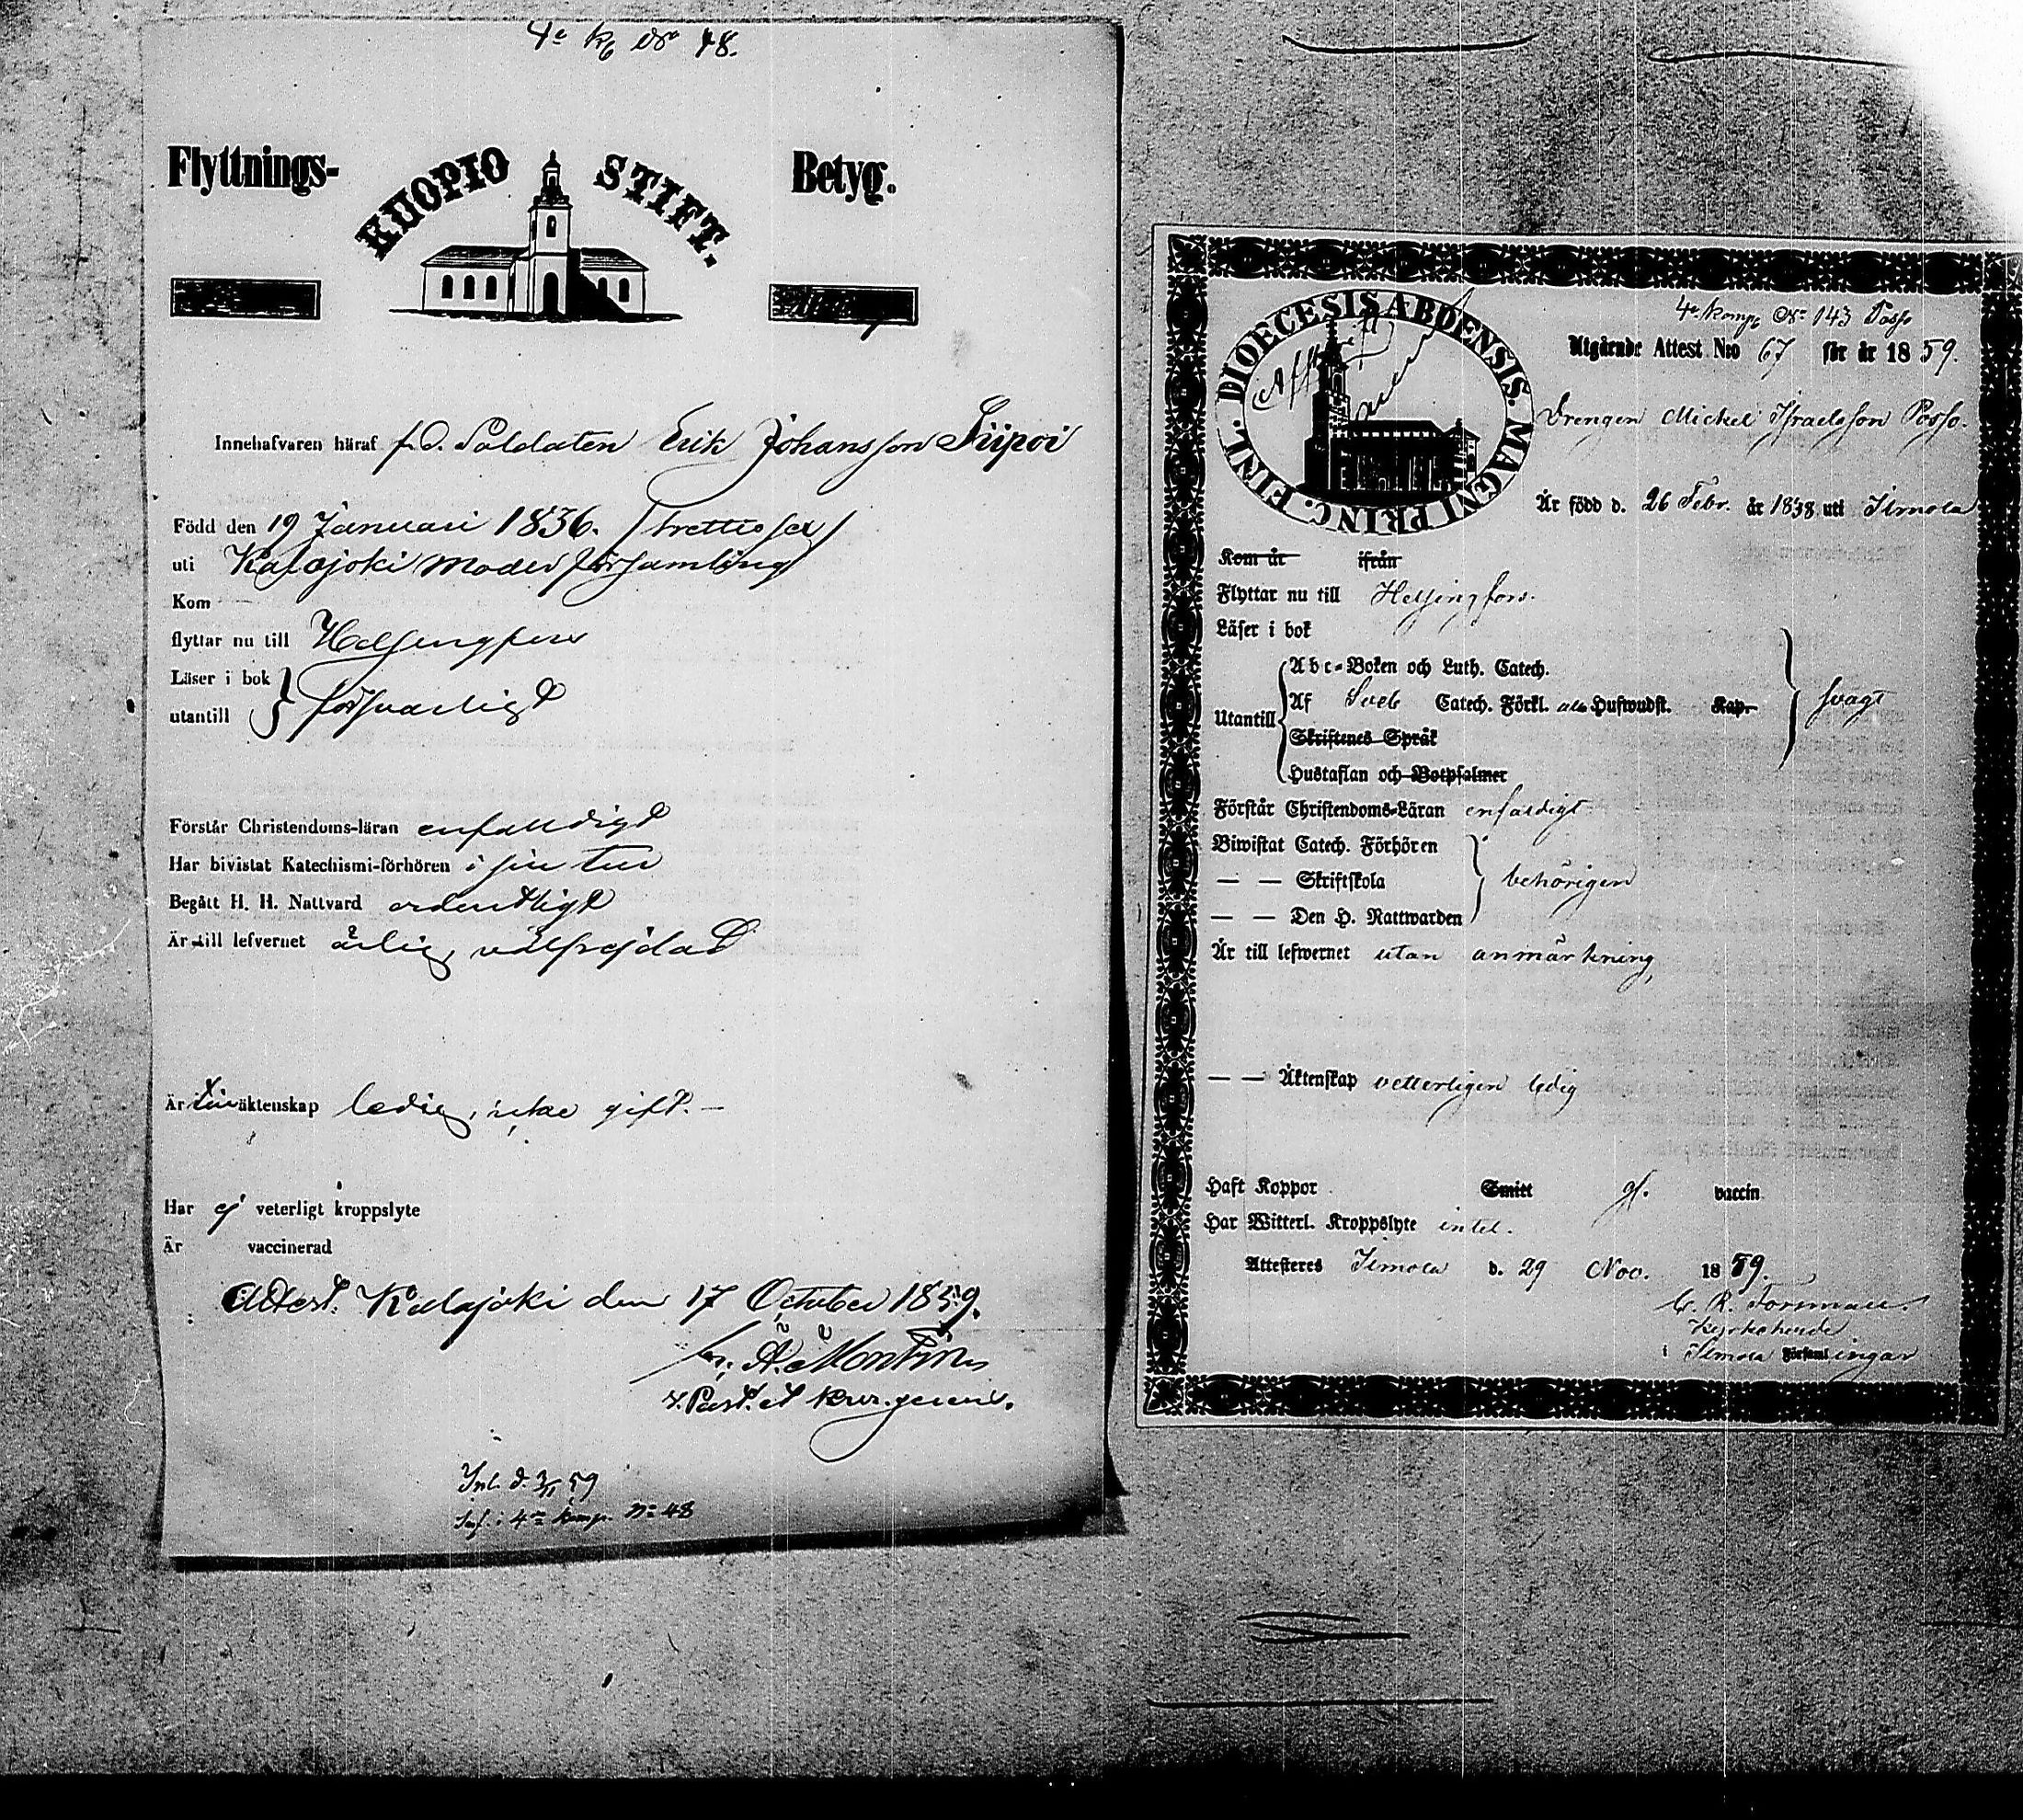 4e kp No 48.
Flyttnings- KUOPIO STIFT. Betyg.
Innehafvaren häraf f.d. Soldaten Erik Johansson Siipoi
Född den 19 Januari 1836. (trettiosex)
uti Kalajoki moderförsamling
Kom
flyttar nu till Helsingfors
Läser i bok
utantill } försvarligt
Förstår Christendoms-läran enfaldigt
Har bivistat Katechismi-förhören i sin tur
Begått H. H. Nattvard ordentligt
Är till lefvernet ärlig, välfrejdad
Är till äktenskap ledig, icke gift. —
Har ej veterligt kroppslyte
Är vaccinerad
Attest. Kalajoki den 17 October 1859.
A. Montin
v. Past. et
Inl. d. 3/11 59
Inf. i 4de komp. No 48
4e komp No 143 Posso
DIOECESIS ABOENSIS. MAGNI PRINC. FINL.
Utgående Attest N:o 67 för år 1859.
Drengen Mickel Israelsson Posso.
Är född d. 26 Febr. år 1838 uti Ilmola
Kom år ifrån
Flyttar nu till Helsingfors.
Läser i bok
Abc-Boken och Luth. Catech.
Utantill Af Sveb Catech. Förkl. alla Hufwudst. Kap. svagt
Skriftenes Språk
Hustaflan och Botpsalmer
Förstår Christendoms-Läran enfaldigt
Biwistat Catech. Förhören
— — Skriftskola behörigen
— — Den H. Nattwarden
Är till lefwernet utan anmärkning,
— — Äktenskap vetterligen ledig
Haft Koppor Smitt gf. vaccin
Har Witterl. Kroppslyte intet.
Attesteres Ilmola d. 29 Nov. 1859.
C. R. Forsman.
Kyrkoherde
i Ilmola Församlingar